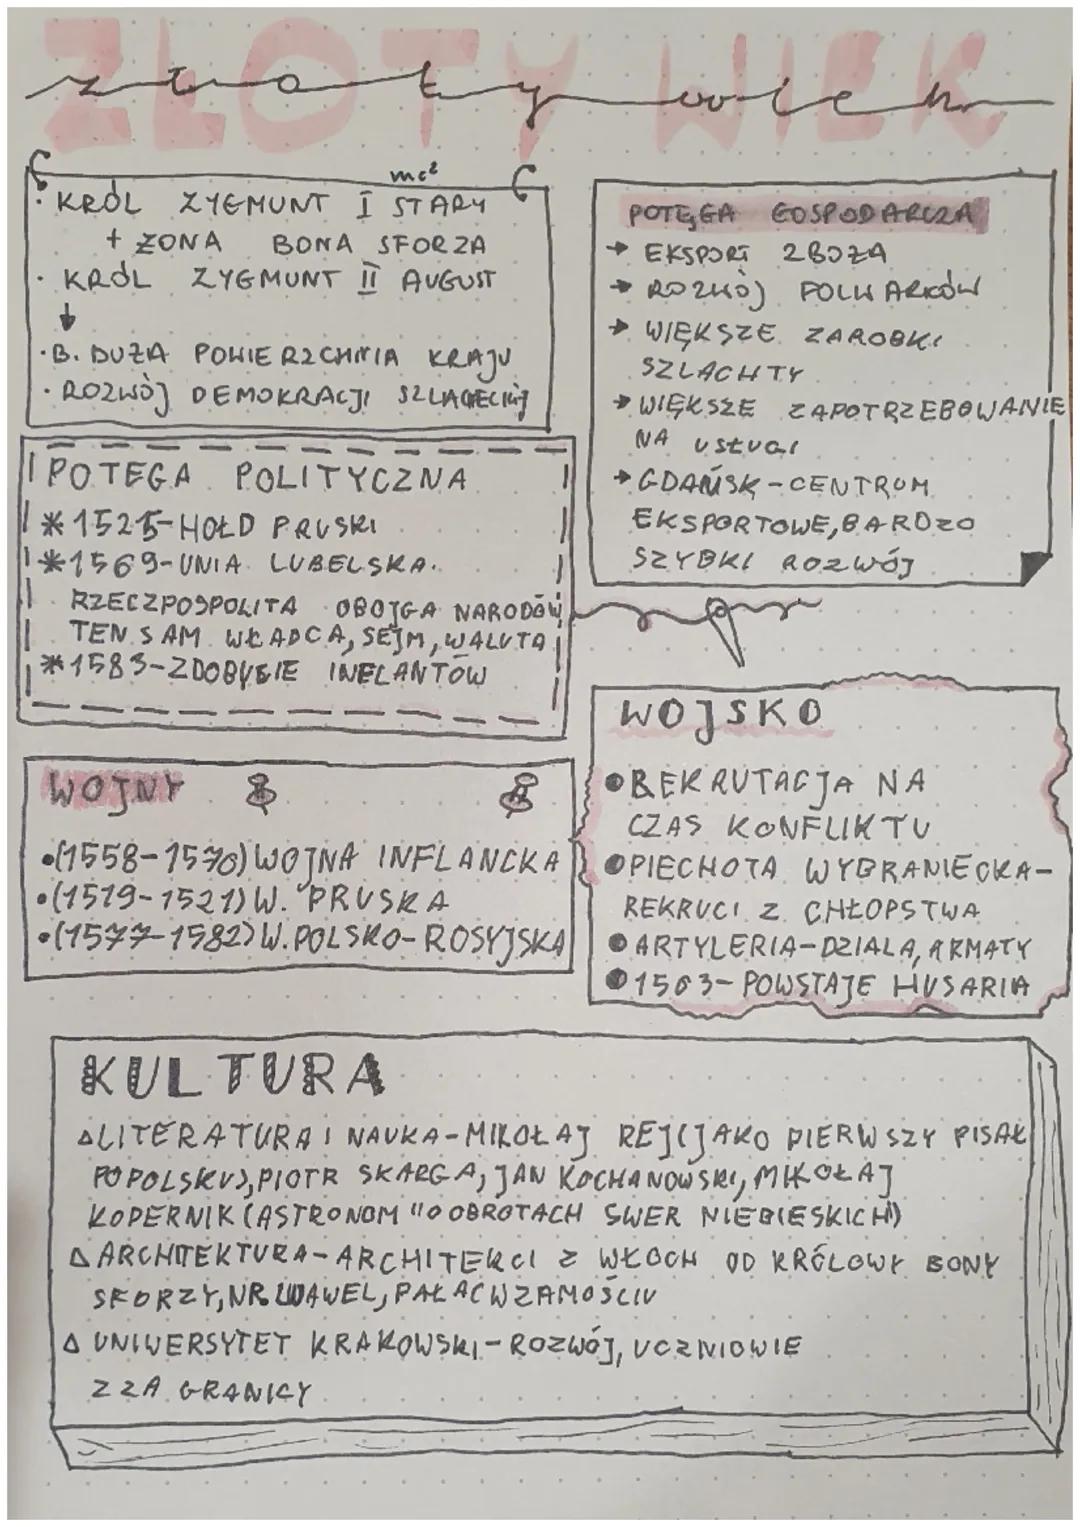 ZŁOTY WIEK
złoty wiek
mc²
· KRÓL ZYGMUNT I STARY
+ ŻONA BONA SFORZA
· KRÓL ZYGMUNT II AUGUST
↓
· B. DUŻA POWIERZCHNIA KRAJU
· ROZWÓJ DEMOKRACJI SZLACHECKIEJ
POTĘGA GOSPODARCZA
→ EKSPORT ZBOŻA
→ ROZWÓJ FOLWARKÓW
→ WIĘKSZE ZAROBKI
SZLACHTY
→ WIĘKSZE ZAPOTRZEBOWANIE
NA USŁUGI
→ GDAŃSK - CENTRUM
EKSPORTOWE, BARDZO
SZYBKI ROZWÓJ
POTEGA POLITYCZNA
* 1525 - HOŁD PRUSKI
* 1569 - UNIA LUBELSKA.
RZECZPOSPOLITA OBOJGA NARODÓW
TEN SAM WŁADCA, SEJM, WALUTA
* 1583 - ZDOBYCIE INFLANTÓW
WOJSKO
• REKRUTACJA NA
CZAS KONFLIKTU
• PIECHOTA WYBRANIECKA -
REKRUCI Z CHŁOPSTWA
• ARTYLERIA - DZIALA, ARMATY
• 1503 - POWSTAJE HUSARIA
WOJNY
• (1558-1570) WOJNA INFLANCKA
• (1519-1521) W. PRUSKA
• (1577-1582) W. POLSKO-ROSYJSKA
KULTURA
△ LITERATURA I NAUKA - MIKOŁAJ REJ (JAKO PIERWSZY PISAŁ
PO POLSKU), PIOTR SKARGA, JAN KOCHANOWSKI, MIKOŁAJ
KOPERNIK (ASTRONOM "O OBROTACH SWER NIEBIESKICH")
△ ARCHITEKTURA - ARCHITEKCI Z WŁOCH OD KRÓLOWY BONY
SFORZY, NP. WAWEL, PAŁAC W ZAMOŚCIU
△ UNIWERSYTET KRAKOWSKI - ROZWÓJ, UCZNIOWIE
Z ZA GRANICY